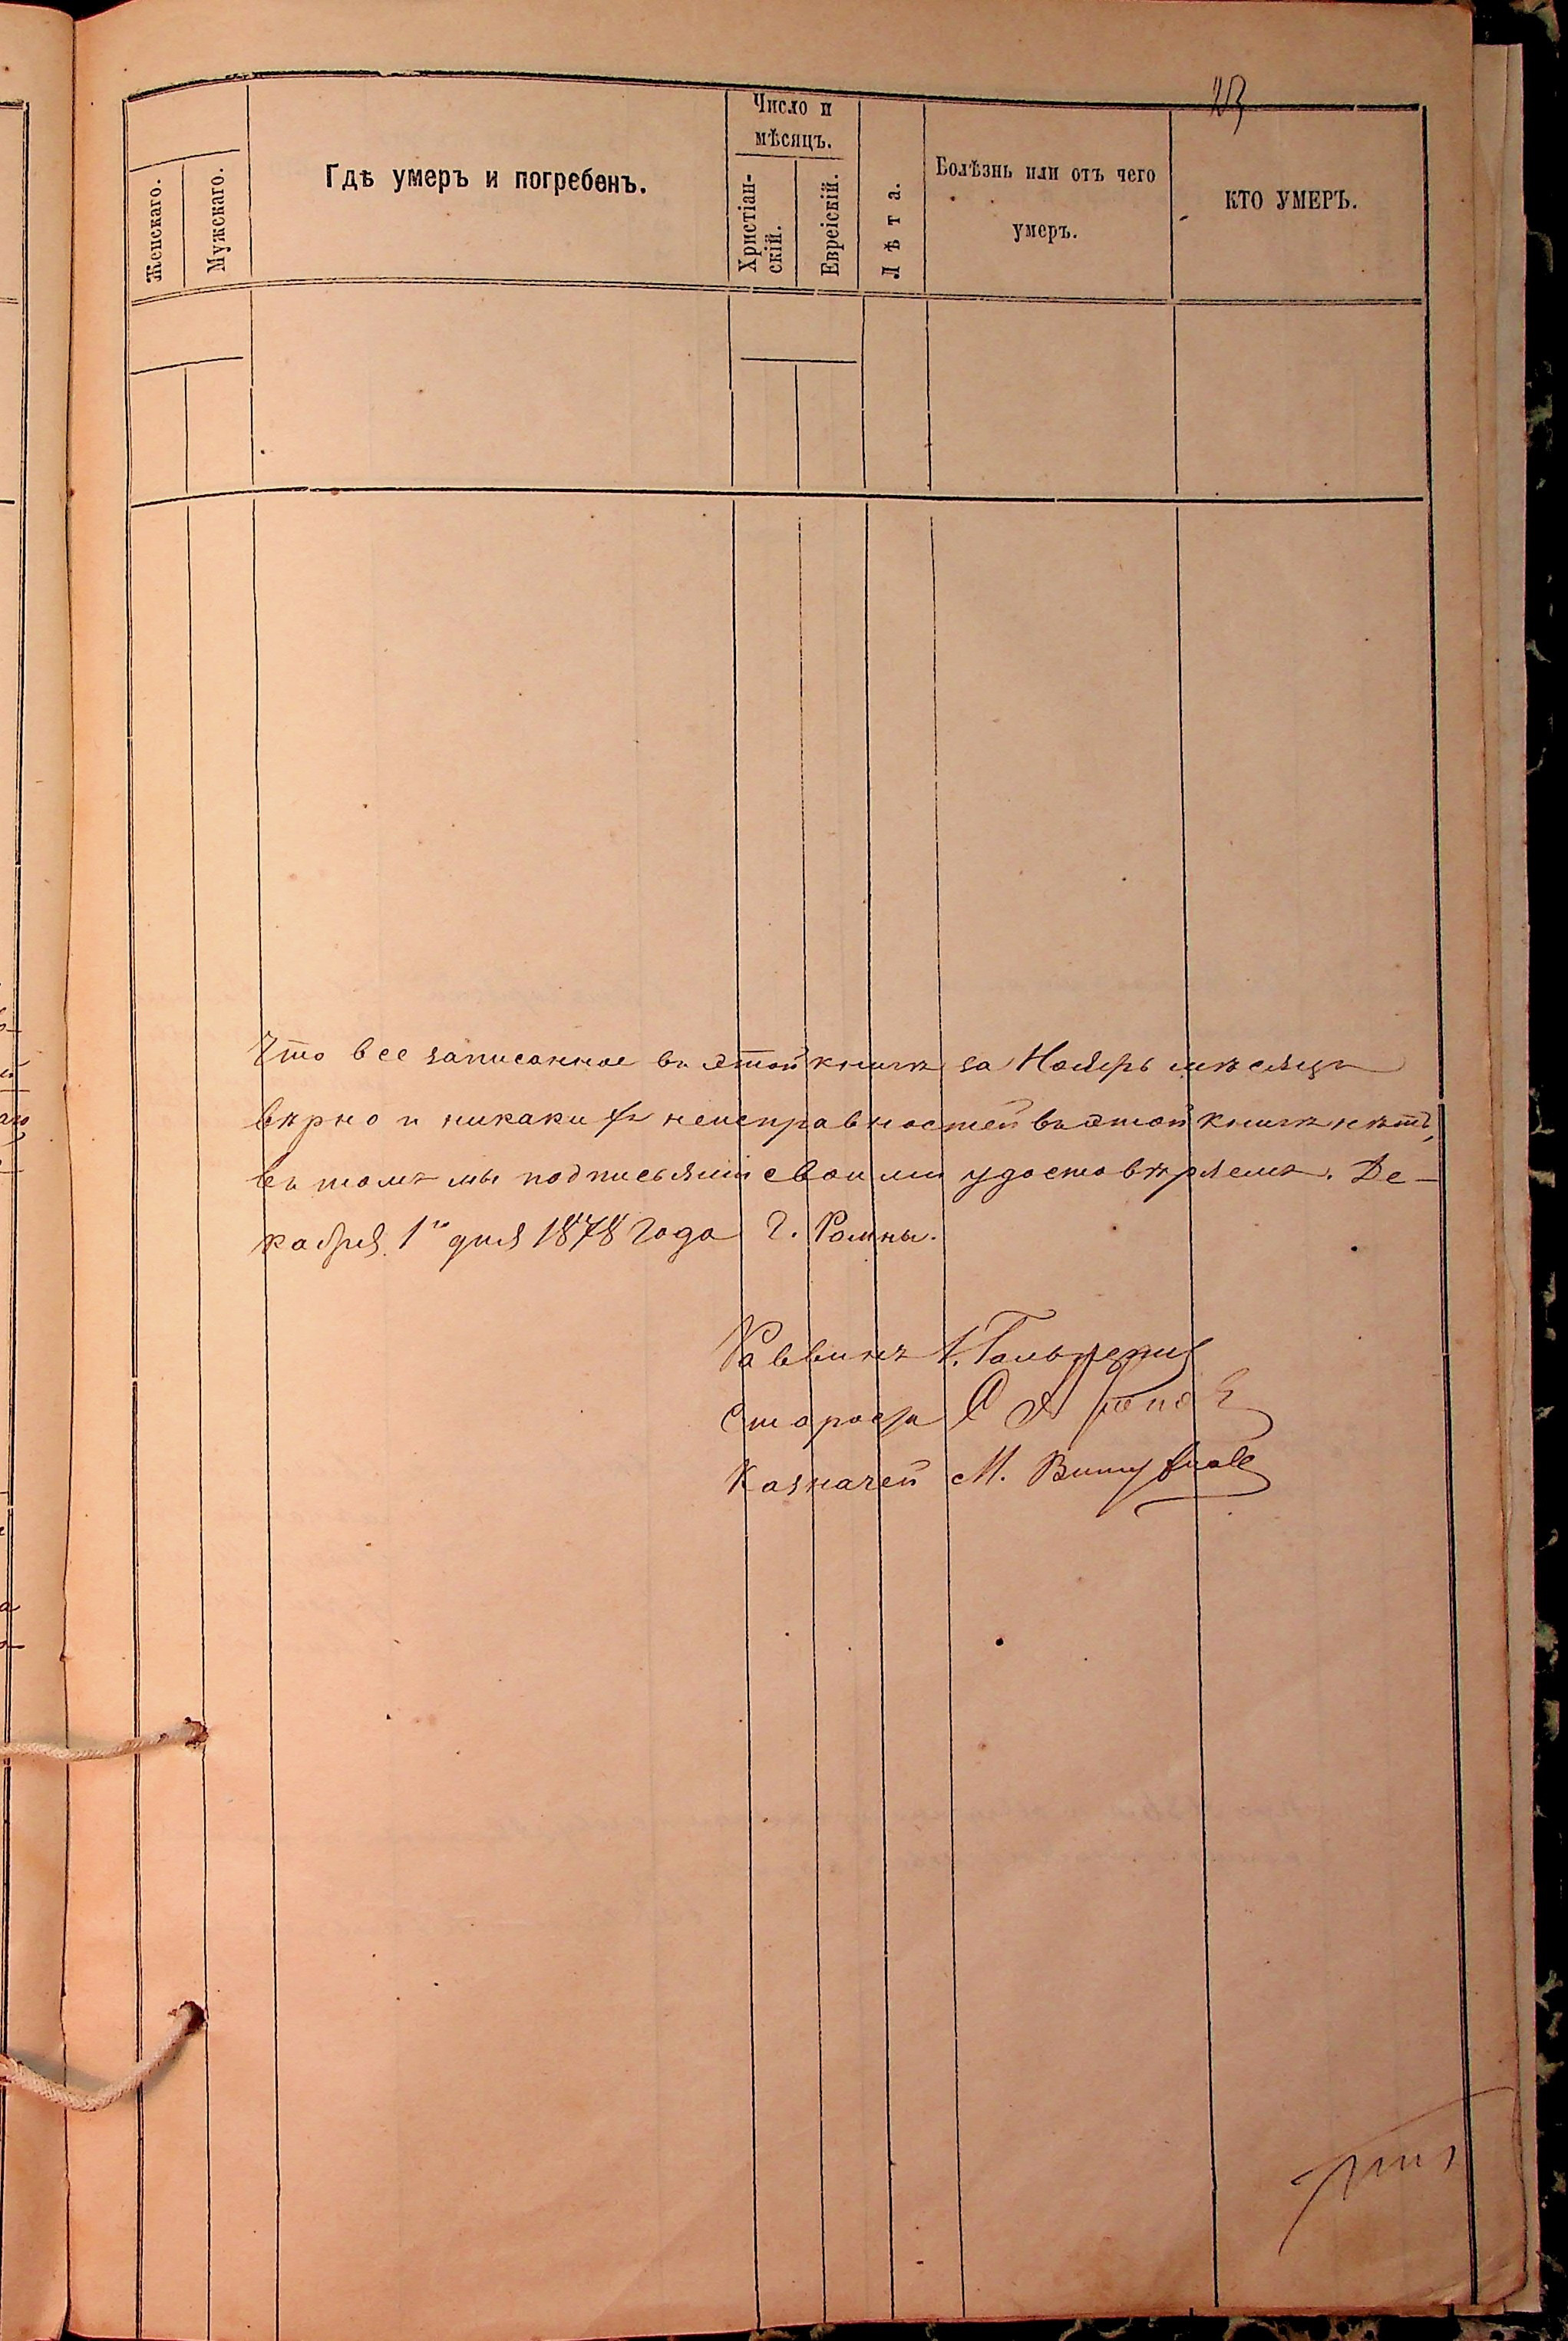 23
Женскаго.
Мужскаго.
Гдѣ умеръ и погребенъ.
Число и
мѣсяцъ.
Христіан-
скій.
Еврейскій.
Лѣта.
Болѣзнь или отъ чего
умеръ.
КТО УМЕРЪ.
Что все записанное въ этой книгѣ за Ноябрь мѣсяцъ
вѣрно и никакихъ неисправностей въ этой книгѣ нѣтъ,
въ томъ мы подписьями своими удостовѣряемъ. Де-
кабря 1го дня 1878 года г. Ромны.
Раввинъ А. Гальперинъ
Староста С
Казначей М.